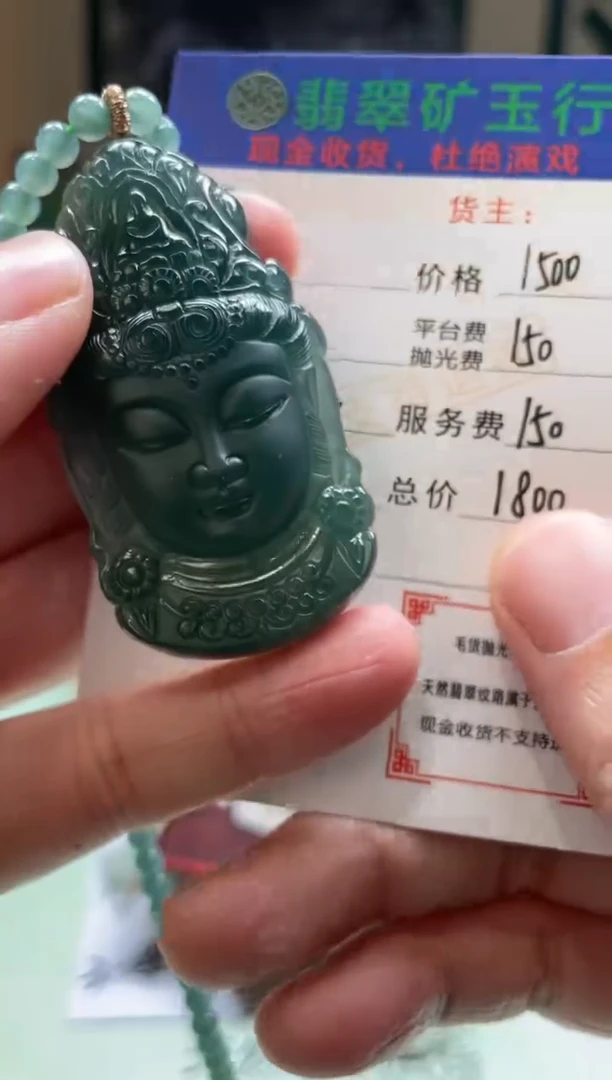 翡翠矿玉行
现金收货、杜绝演戏
货主：
价格 1500
平台费
抛光费 150
服务费 150
总价 1800
毛货抛光
天然翡翠纹路属于
现金收货不支持